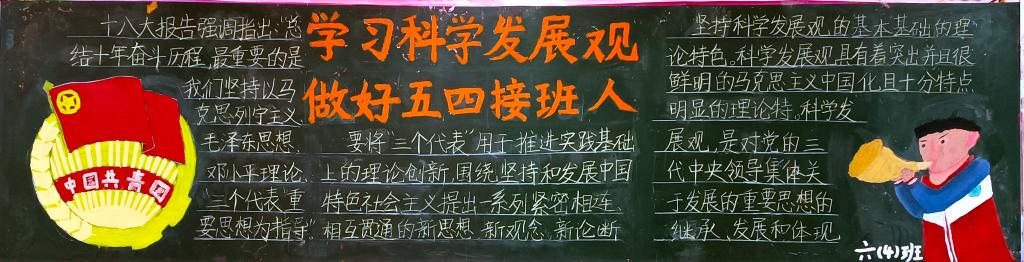 学习科学发展观
做好五四接班人
十八大报告强调指出:"总
结十年奋斗历程,最重要的是
我们坚持以马
克思列宁主义、
毛泽东思想、
邓小平理论、
"三个代表"重
要思想为指导"。
要将"三个代表"用于推进实践基础
上的理论创新,围绕坚持和发展中国
特色社会主义提出一系列紧密相连、
相互贯通的新思想、新观念、新论断
坚持科学发展观的基本基础的理
论特色。科学发展观具有着突出并且很
鲜明的马克思主义中国化且十分特点
明显的理论特。科学发
展观,是对党的三
代中央领导集体关
于发展的重要思想的
继承、发展和体现
中国共青团
六(4)班